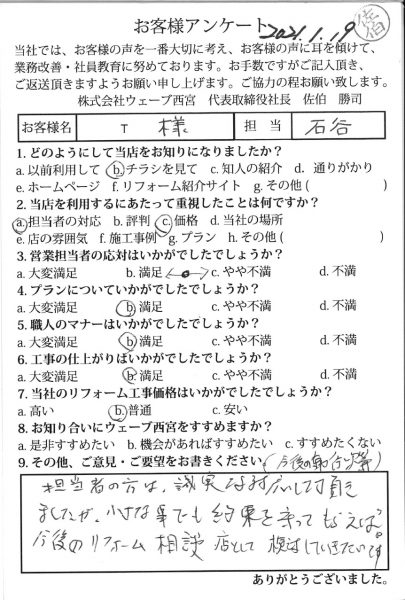 お客様アンケート 2021.1.19 佐伯
当社では、お客様の声を一番大切に考え、お客様の声に耳を傾けて、
業務改善・社員教育に努めております。お手数ですがご記入頂き、
ご返送頂きますようお願い申し上げます。ご協力の程お願い致します。
株式会社ウェーブ西宮 代表取締役社長 佐伯 勝司
お客様名 T 様 担当 石谷
1. どのようにして当店をお知りになりましたか?
a. 以前利用して b. チラシを見て c. 知人の紹介 d. 通りがかり
e. ホームページ f. リフォーム紹介サイト g. その他 ( )
2. 当店を利用するにあたって重視したことは何ですか?
a. 担当者の対応 b. 評判 c. 価格 d. 当社の場所
e. 店の雰囲気 f. 施工事例 g. プラン h. その他 ( )
3. 営業担当者の応対はいかがでしたでしょうか?
a. 大変満足 b. 満足 c. やや不満 d. 不満
4. プランについていかがでしたでしょうか?
a. 大変満足 b. 満足 c. やや不満 d. 不満
5. 職人のマナーはいかがでしたでしょうか?
a. 大変満足 b. 満足 c. やや不満 d. 不満
6. 工事の仕上がりはいかがでしたでしょうか?
a. 大変満足 b. 満足 c. やや不満 d. 不満
7. 当社のリフォーム工事価格はいかがでしたでしょうか?
a. 高い b. 普通 c. 安い
8. お知り合いにウェーブ西宮をすすめますか?
a. 是非すすめたい b. 機会があればすすめたい c. すすめたくない
9. その他、ご意見・ご要望をお書きください。(今後の
担当者の方は、誠実な対応して頂き
ましたが、小さな事でも約束を守ってもらえば
今後のリフォーム相談店として検討していきたいです
ありがとうございました。